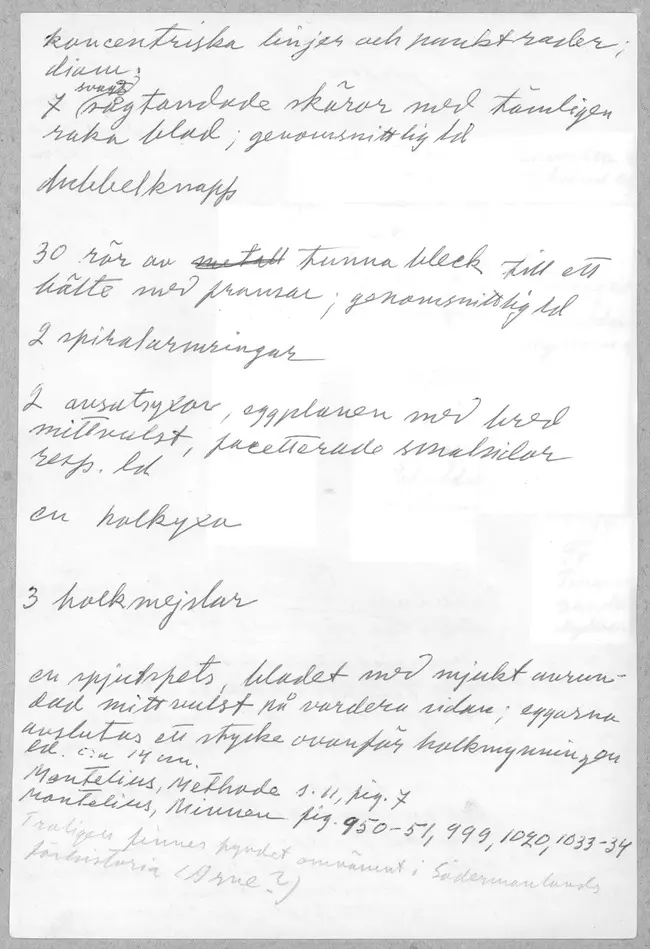 koncentriska linjer och punktrader;
diam.
svagt
7 sågtandade skäror med tämligen
raka blad; genomsnittlig ld
dubbelknapp
30 rör av metall tunna bleck till ett
bälte med fransar; genomsnittlig ld
2 spiralarmringar
2 avsatsyxor, eggplanen med bred
mittvulst, facetterade smalsidor
resp. ld
en holkyxa
3 holkmejslar
en spjutspets, bladet med mjukt avrun-
dad mittvulst på vardera sidan; eggarna
avslutas ett stycke ovanför holkmynningen
ld. c:a 14 cm.
Montelius, Methode s. 11, fig. 7
Montelius, Minnen fig. 950-51, 999, 1020, 1033-34
Troligen finnes fyndet omnämnt i Södermanlands
förhistoria (Arne?)